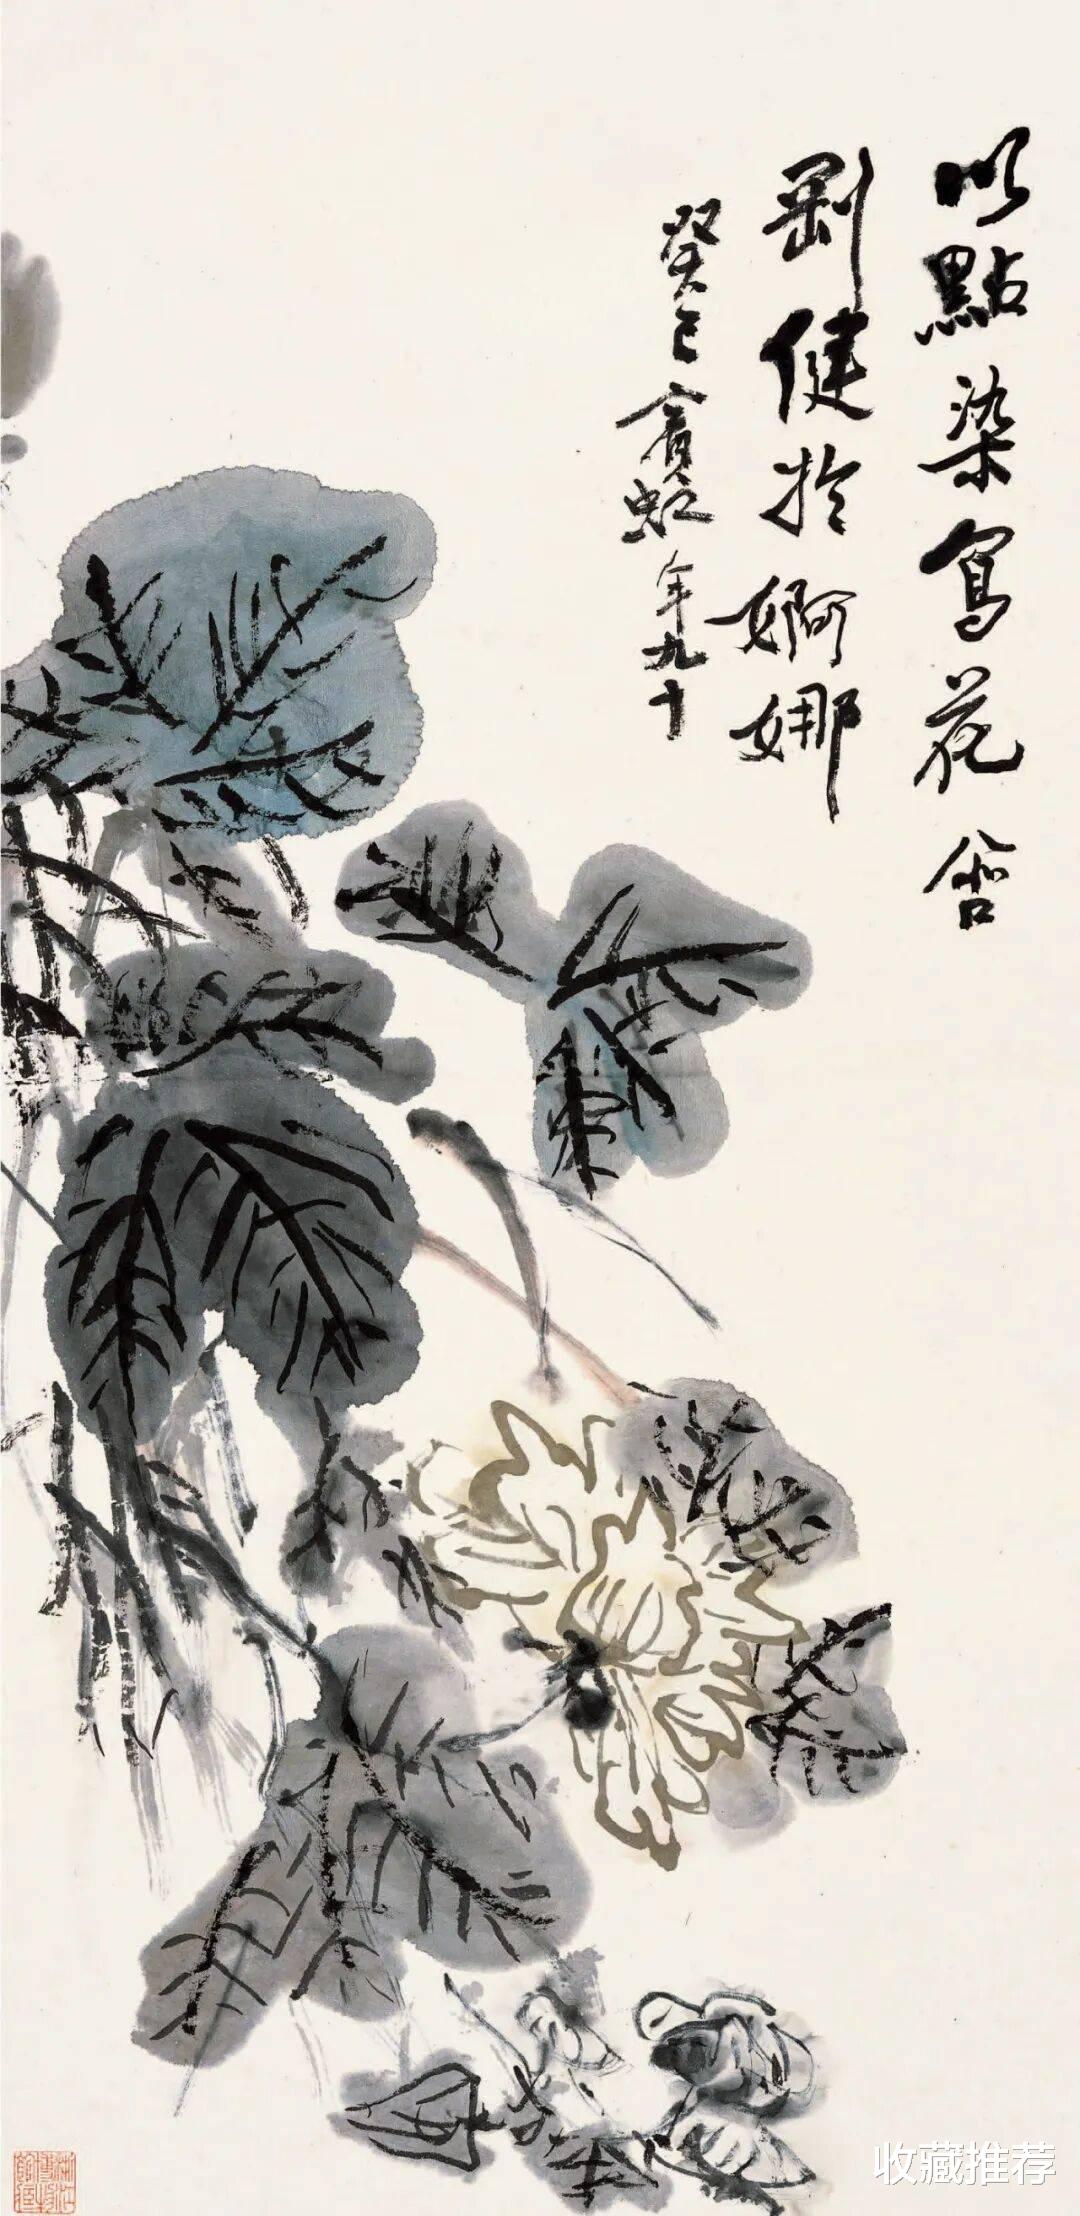 以點染寫花含
剛健於婀娜
癸巳賓虹年九十
收藏推荐